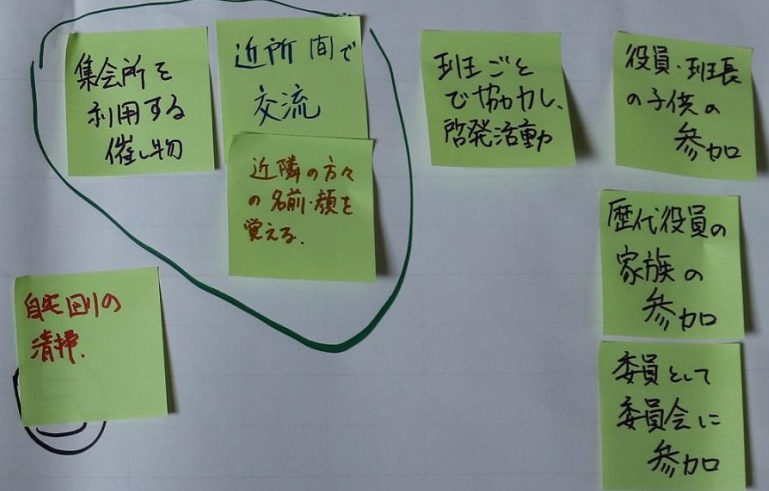 集会所を
利用する
催し物
近所間で
交流
近隣の方々
の名前・顔を
覚える.
自宅回りの
清掃.
班ごと
で協力し、
啓発活動
役員・班長
の子供の
参加
歴代役員の
家族の
参加
委員として
委員会に
参加